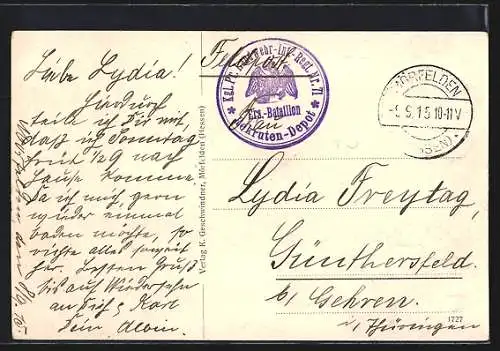 Liebe Lydia!
Hierdurch
teile ich Dir mit,
daß ich Sonntag
früh 1/29 nach
Hause komme.
Da ich mich gern
wieder einmal
baden möchte, so
richte alles soweit
her. Besten Gruß
bis auf Wiedersehn
an Dich & Karl
Dein Albin.
Verlag K. Geschwindner, Mörfelden (Hessen)
Feldpost
* Kgl. Pr. Landwehr-Inf.-Regt. Nr. 71 *
Ers.-Bataillon
Rekruten-Depot
MÖRFELDEN
-9.9.15.10-11V
(HESSEN)
Lydia Freytag,
Günthersfeld
b/ Gehren.
i/Thüringen
1727